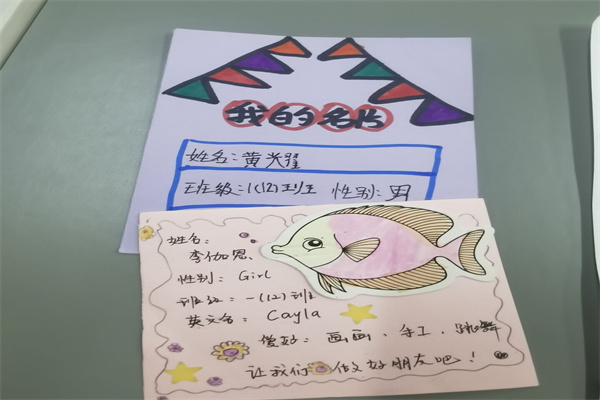 我的名片
姓名:黄炎翟
班级:1(12)班 性别:男
姓名:
李伽恩、
性别: Girl
班级: 一(12)班
英文名: Cayla
爱好: 画画、手工、跳舞
让我们做好朋友吧!